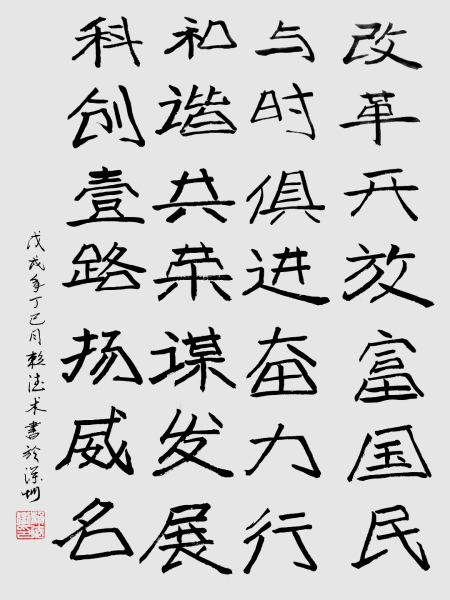 改革开放富国民
与时俱进奋力行
和谐共荣谋发展
科创壹路扬威名
戊戌年丁巳月赖法术书於深圳